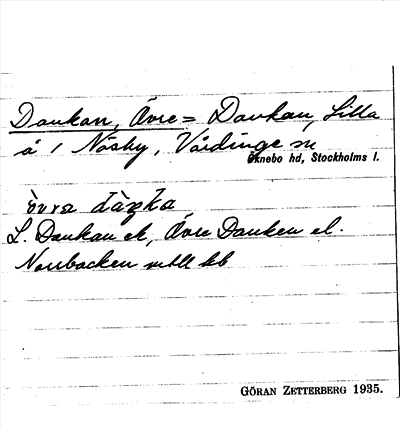 Dankan, Övre = Dankan, Lilla
å i Näsby, Vårdinge sn
Öknebo hd, Stockholms l.
övra
L. Dankan ek, Övre Danken el.
Norrbacken
GÖRAN ZETTERBERG 1935.